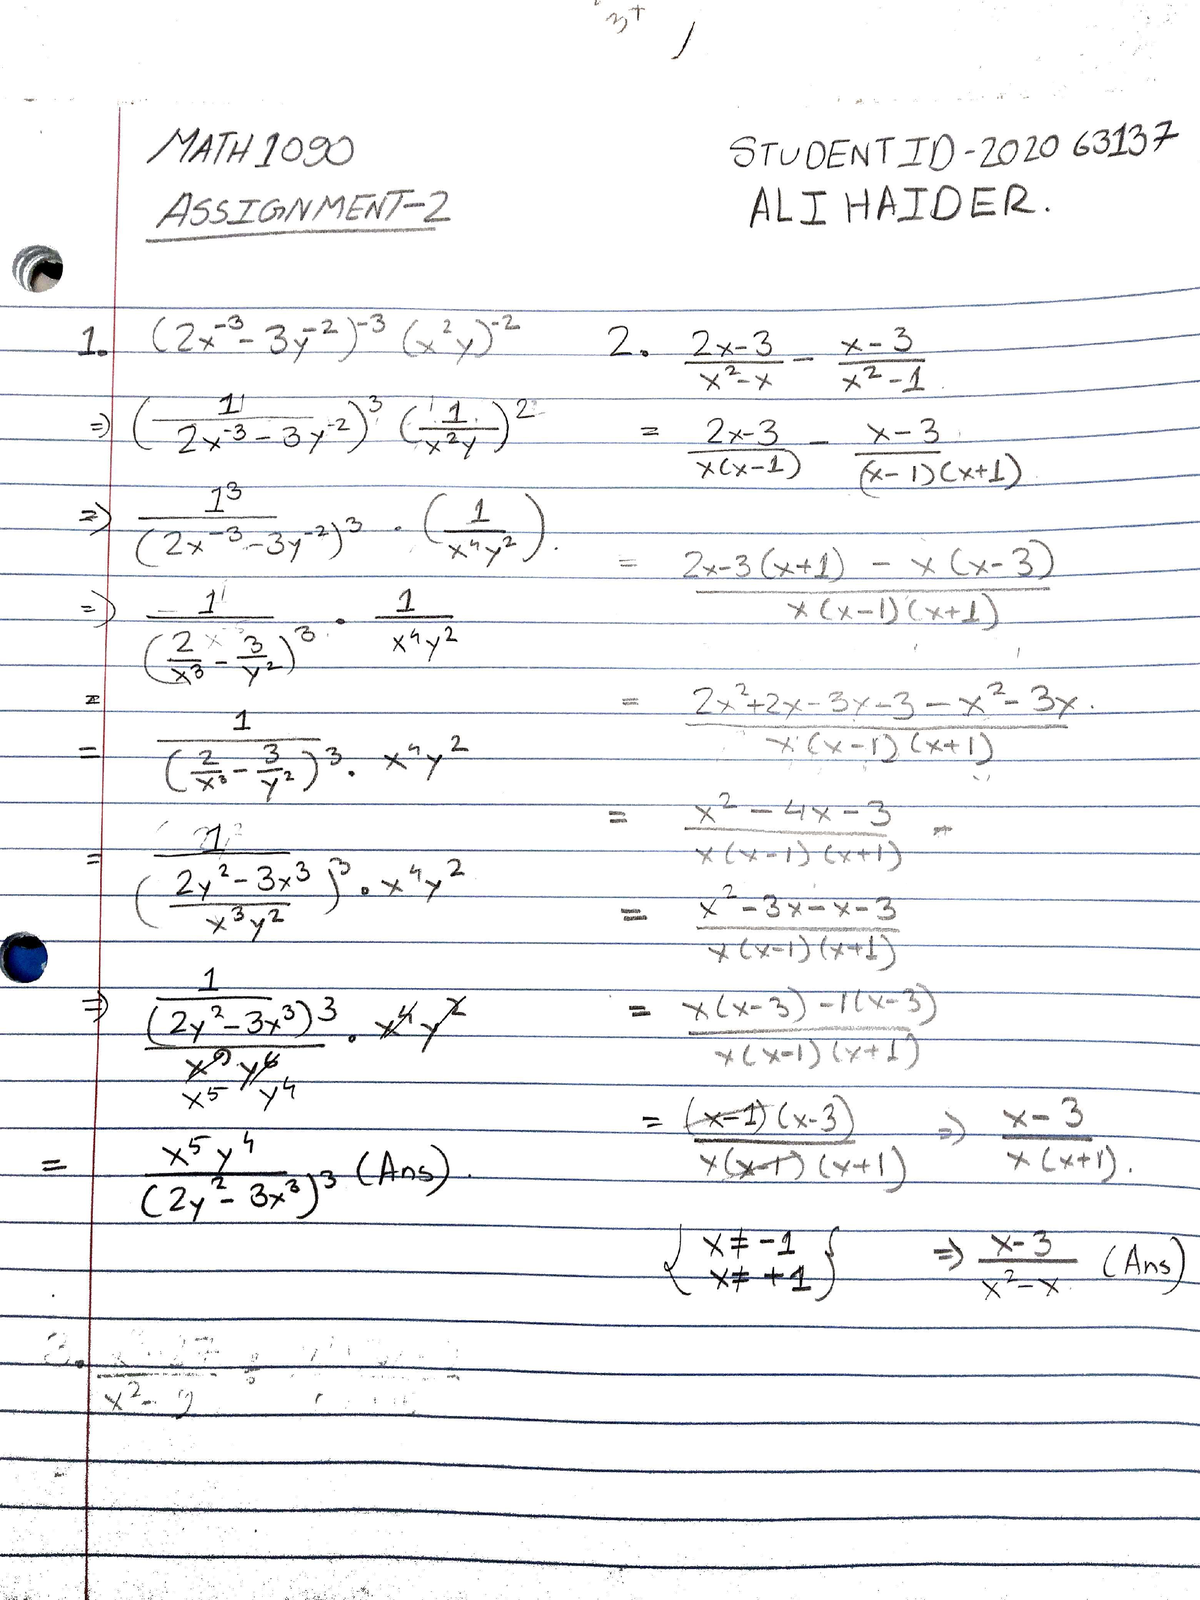 MATH 1090
ASSIGNMENT-2
STUDENT ID - 2020 63137
ALI HAIDER.
1. (2x^-3 - 3y^-2)^-3 (x^2y)^-2
=> (1/(2x^-3 - 3y^-2))^3 (1/(x^2y))^2
=> 1^3/(2x^-3 - 3y^-2)^3 · (1/(x^4y^2)).
=> 1/(2/x^3 - 3/y^2)^3 · 1/(x^4y^2)
=
= 1/((2/x^3 - 3/y^2)^3 · x^4y^2)
= 1/(((2y^2 - 3x^3)/(x^3y^2))^3 · x^4y^2)
=> 1/((2y^2 - 3x^3)^3/(x^9y^6) · x^4y^2)
x^5 y^4
= x^5y^4/(2y^2 - 3x^3)^3 (Ans).
2. (2x-3)/(x^2-x) - (x-3)/(x^2-1)
= (2x-3)/(x(x-1)) - (x-3)/((x-1)(x+1))
= (2x-3(x+1) - x(x-3))/(x(x-1)(x+1))
= (2x^2+2x-3x-3-x^2-3x.)/(x(x-1)(x+1))
= (x^2-4x-3)/(x(x-1)(x+1))
= (x^2-3x-x-3)/(x(x-1)(x+1))
= (x(x-3)-1(x-3))/(x(x-1)(x+1))
= ((x-1)(x-3))/(x(x-1)(x+1)) => (x-3)/(x(x+1)).
{x≠-1
x≠+1} => (x-3)/(x^2-x) (Ans)
3.
x^2-9